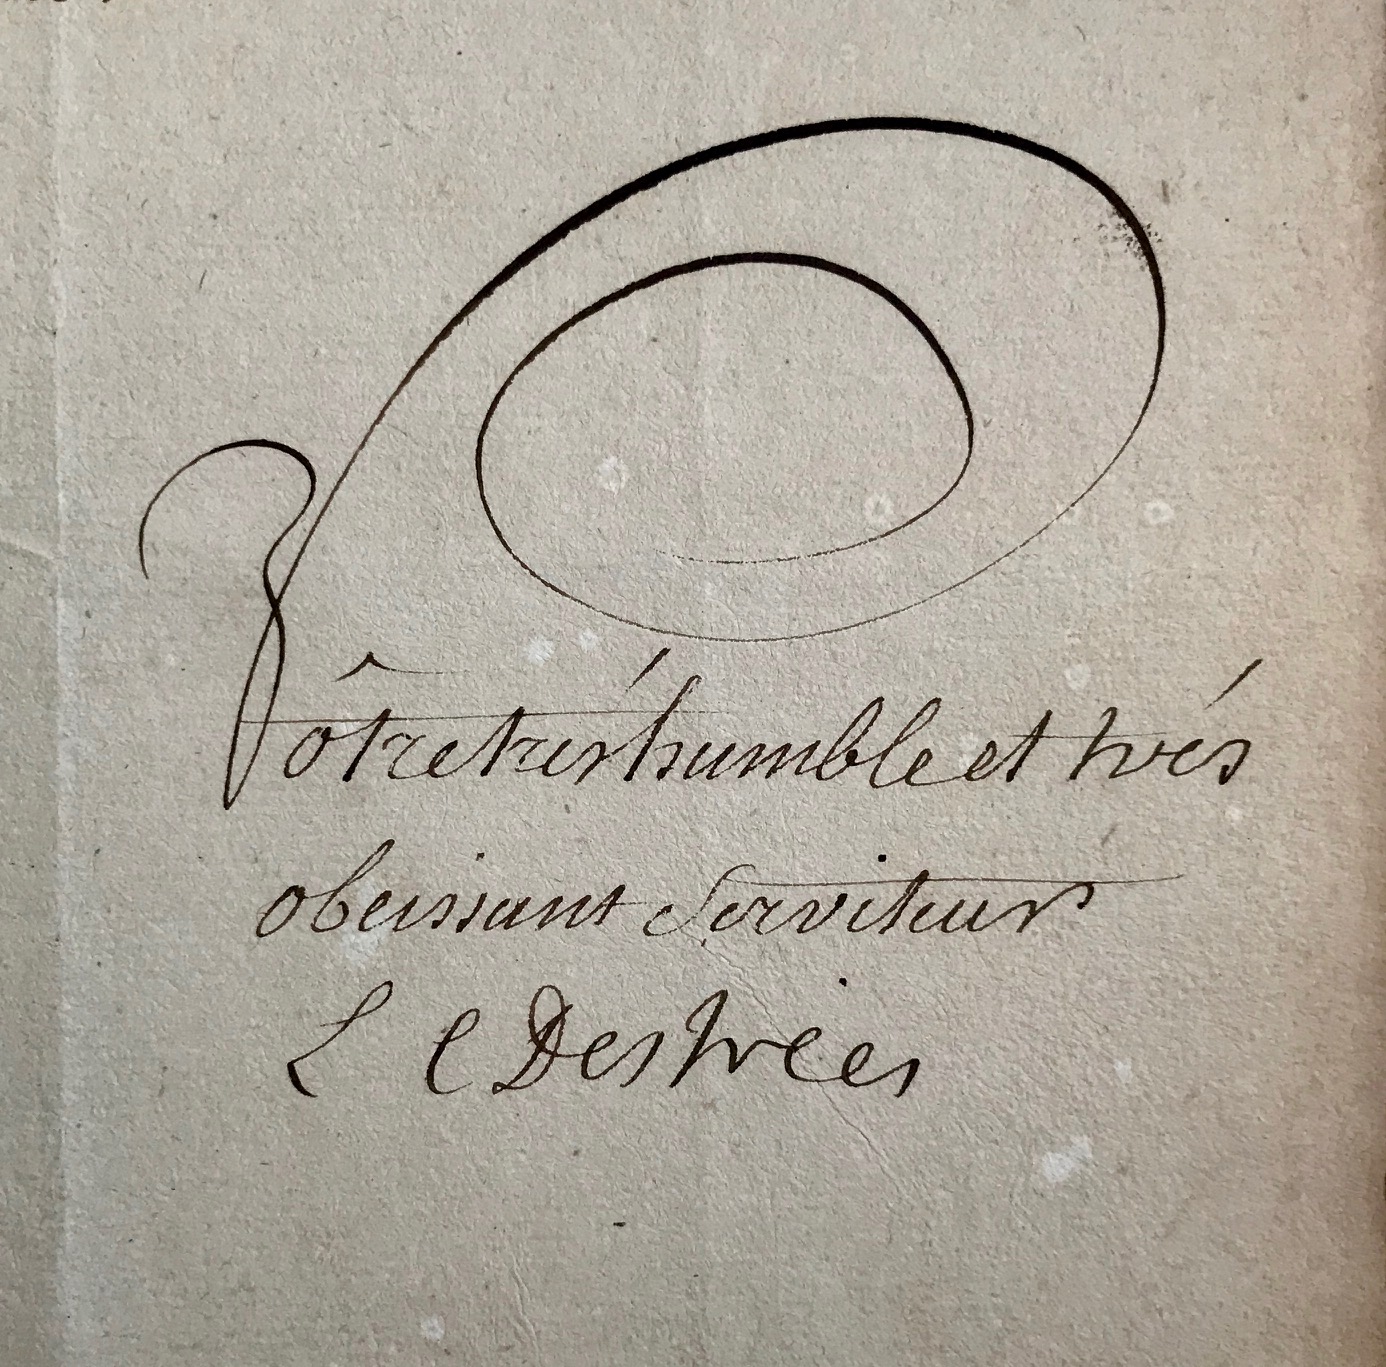 Vôtre trés humble et trés
obeissant Serviteur
L C Destrées